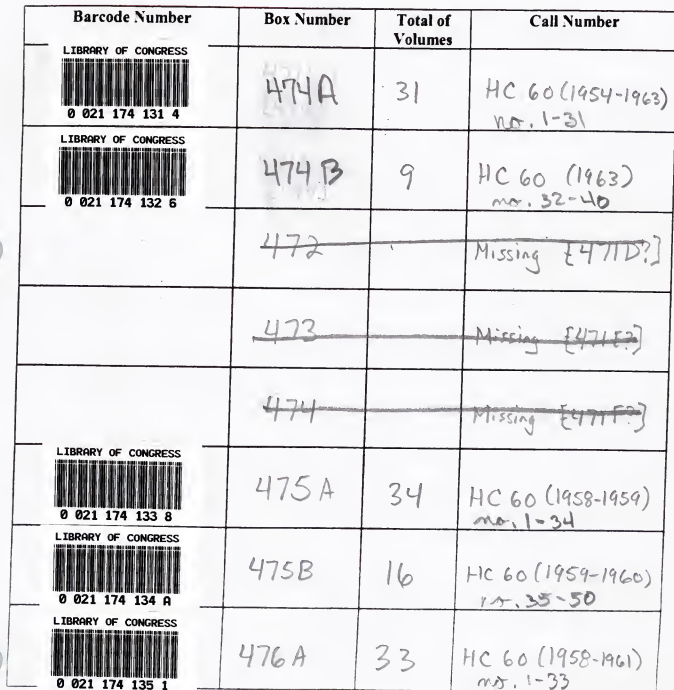 Barcode Number Box Number Total of Call Number
Volumes
LIBRARY OF CONGRESS
0 021 174 131 4
474A 31 HC 60 (1954-1963)
no. 1-31
LIBRARY OF CONGRESS
0 021 174 132 6
474B 9 HC 60 (1963)
no. 32-40
472 Missing [471D?]
473 Missing [471E?]
474 Missing [471F?]
LIBRARY OF CONGRESS
0 021 174 133 8
475A 34 HC 60 (1958-1959)
no. 1-34
LIBRARY OF CONGRESS
0 021 174 134 A
475B 16 HC 60 (1959-1960)
no. 35-50
LIBRARY OF CONGRESS
0 021 174 135 1
476A 33 HC 60 (1958-1961)
no. 1-33